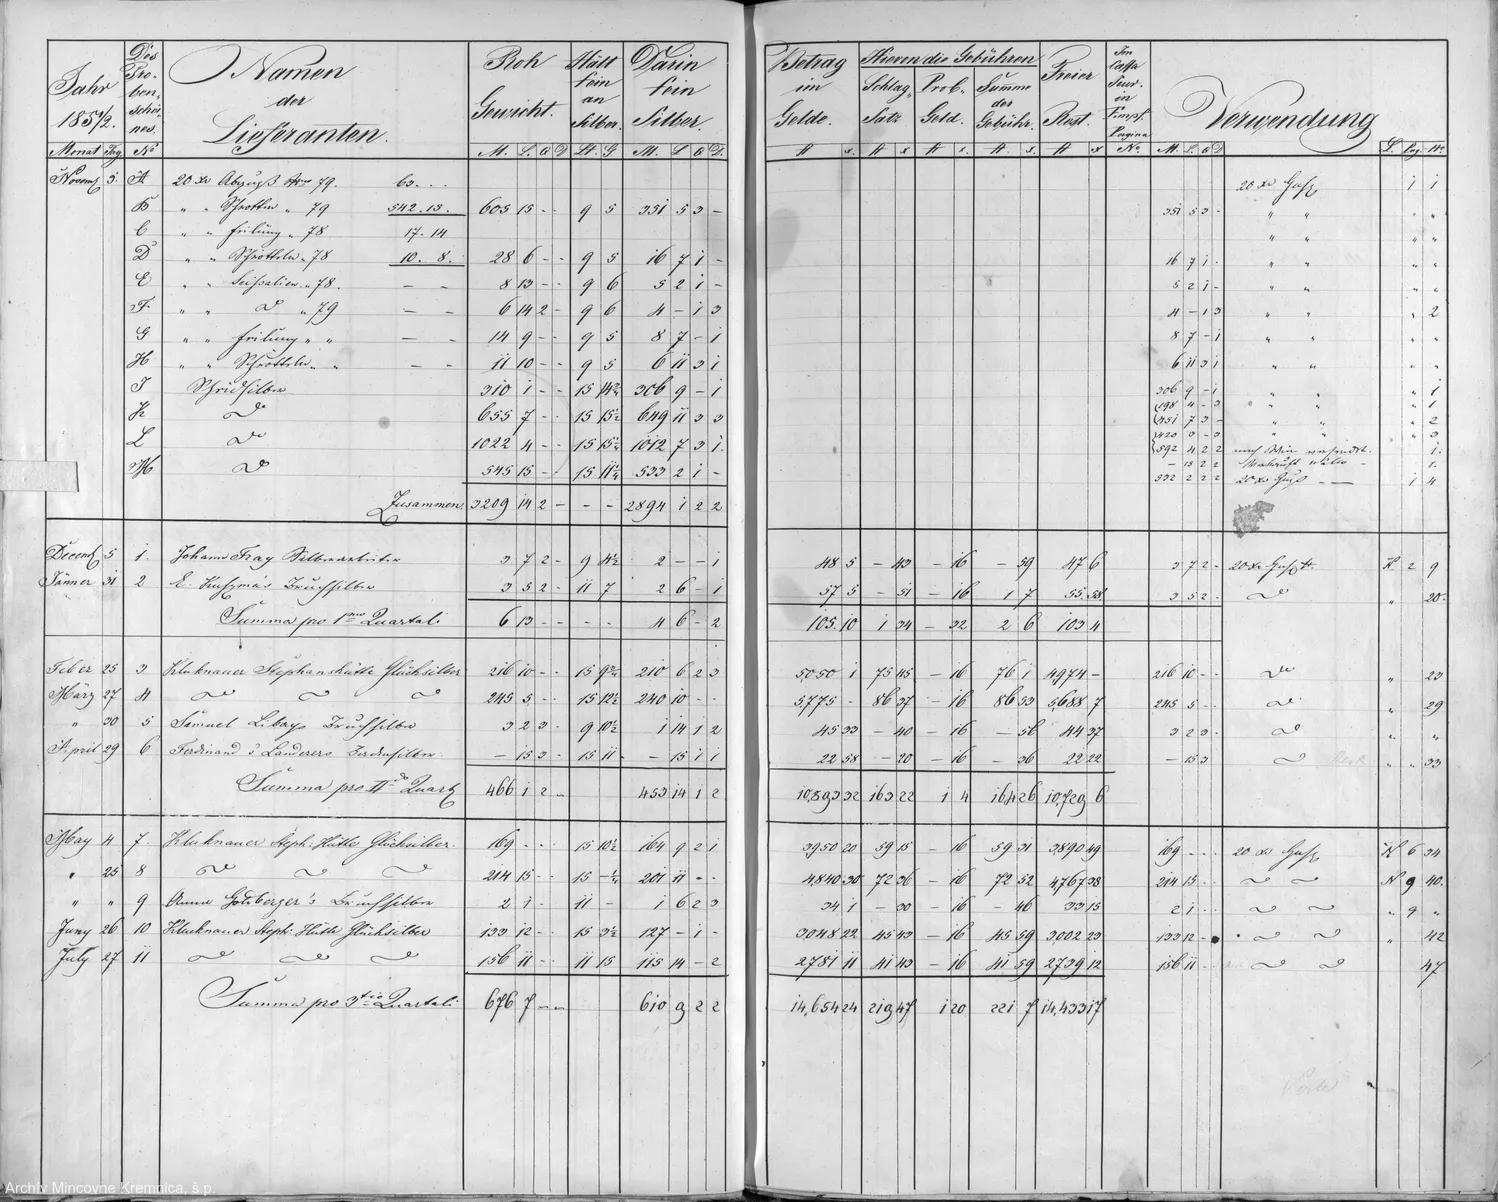 Jahr 185½. Des Probenscheines Namen der Lieferanten. Roh Gewicht. Hält fein an Silber. Darin fein Silber. Betrag im Gelde. Hievon die Gebühren Schlag Satz Prob. Geld. Summe der Gebühr. Freier Rest. Verwendung
Monat Tag No M. L. Q D Lt. G M. L Q D. f x. f x f x. f. x. f x No. M. L. Q D L. Pag. No.
Novemb 5. A 20 xr Abguß 79. 63. . . 20 xr Guß 1 1
B " " Schrotten " 79 542. 15. 605 15 - - 9 5 351 5 3 - 351 5 3 - " " " "
C " " " 78 17. 14 " " " "
D " " Schrotten " 78 10. 8. 28 6 - - 9 5 16 7 1 - 16 7 1 - " " " "
E " " " 78. - - 8 13 - - 9 6 5 2 1 - 5 2 1 - " " " "
F " " " 79 - - 6 14 2 - 9 6 4 - 1 3 4 - 1 3 " " " 2
G " " " " - - 14 9 - - 9 5 8 7 - 1 8 7 - 1 " " " "
H " " Schrotten " " - - 11 10 - - 9 5 6 11 3 1 6 11 3 1 " " " "
I 310 1 - - 15 306 9 - 1 306 9 - 1 " " " 1
K 655 7 - - 15 15½ 649 11 3 3 198 4 - 3 " " " 1
451 7 3 - " " " 2
L 1022 4 - - 15 1012 7 3 1. 420 3 - 3 " " " 3
592 4 2 2 nach Wien versendet. 1.
M 545 15 - - 15 533 2 1 - - 15 2 2 1.
532 2 2 2 20 xr Guß - - 1 4
Zusammen 3209 14 2 - - - 2894 1 2 2
Decemb 5 1. Johann Fray Silberarbeiter 3 7 2 - 9 4½ 2 - - 1 48 5 - 43 - 16 - 59 47 6 3 7 2 - 20 xr Guß K 2 9
Jänner 31 2 Bruchsilber 3 5 2 - 11 7 2 6 - 1 57 5 - 51 - 16 1 7 55. 58 3 5 2 - " 20.
Summa pro 1mo Quartali 6 13 - - - - 4 6 - 2 105. 10 1 34 - 32 2 6 103 4
Feber 25 3 Kluknauer Stephanshütte Glücksilber 216 10 - - 15 210 6 2 3 5050 1 75 45 - 16 76 1 4974 - 216 10 - - " 23
März 27 4 245 5 - - 15 12½ 240 10 - - 5775 - 86 37 - 16 86 53 5688 7 245 5 - - " 29
" 30 5 Samuel Libay Bruchsilber 3 2 3 - 9 10½ 1 14 1 2 45 33 - 40 - 16 - 56 44 37 3 2 3 - " "
April 29 6 Ferdinand Landerers - 15 3 - 15 11 - - 15 1 1 22 58 - 20 - 16 - 36 22 22 - 15 3 " " 33
Summa pro IIdo Quart 466 1 2 - 453 14 1 2 10,893 32 163 22 1 4 164 26 10,729 6
May 4 7. Kluknauer Steph. Hütte Glücksilber. 169 - - - 15 10½ 164 9 2 1 3950 20 59 15 - 16 59 31 3890 49 169 - - - 20 xr Guß K 6 34
" 25 8 214 15 - - 15 201 11 - - 4,840 30 72 36 - 16 72 52 4,767 38 214 15 - - K 9 40.
" " 9 Anna Bruchsilber 2 1 - 11 - 1 6 2 3 34 1 - 30 - 16 - 46 33 15 2 1 - - " 9 "
Juny 26 10 Kluknauer Steph. Hütte Glücksilber 133 12 - - 15 3½ 127 - 1 - 3048 22 45 43 - 16 45 59 3,002 23 133 12 - " 42
July 27 11 156 11 - - 11 15 115 14 - 2 2781 11 41 43 - 16 41 59 2739 12 156 11 - - 47
Summa pro 3tio Quartali 676 7 - - 610 9 2 2 14,654 24 219 47 1 20 221 7 14,433 17
Archív Mincovne Kremnica, š.p.